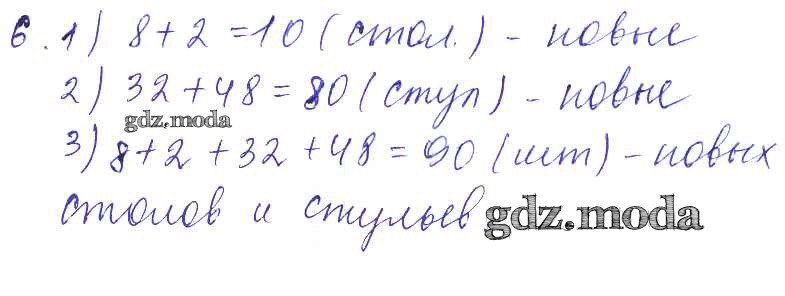 6. 1) 8 + 2 = 10 (стол.) - новые
2) 32 + 48 = 80 (стул) - новые
gdz.moda
3) 8 + 2 + 32 + 48 = 90 (шт) - новых
столов и стульев gdz.moda